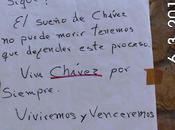 Sigue?
El sueño de Chávez
no puede morir tenemos
que defender este proceso.
Viva Chávez por
Siempre.
Viviremos y Venceremos
6 3 201